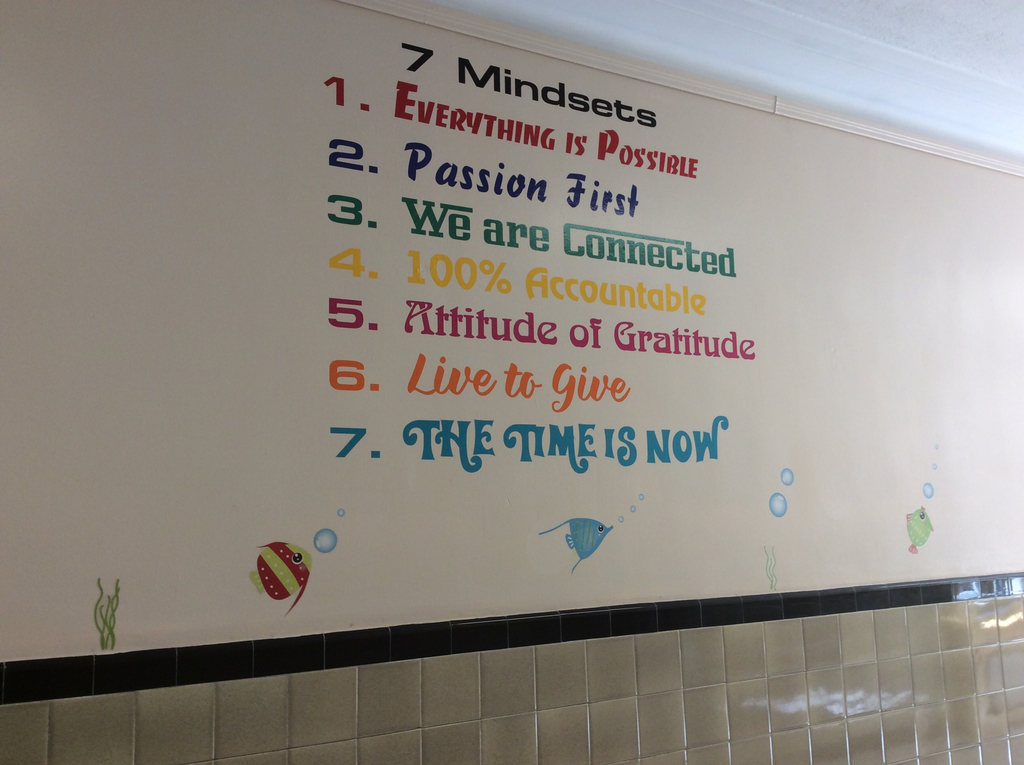 7 Mindsets
1. Everything is Possible
2. Passion First
3. We are Connected
4. 100% Accountable
5. Attitude of Gratitude
6. Live to Give
7. THE TIME IS NOW